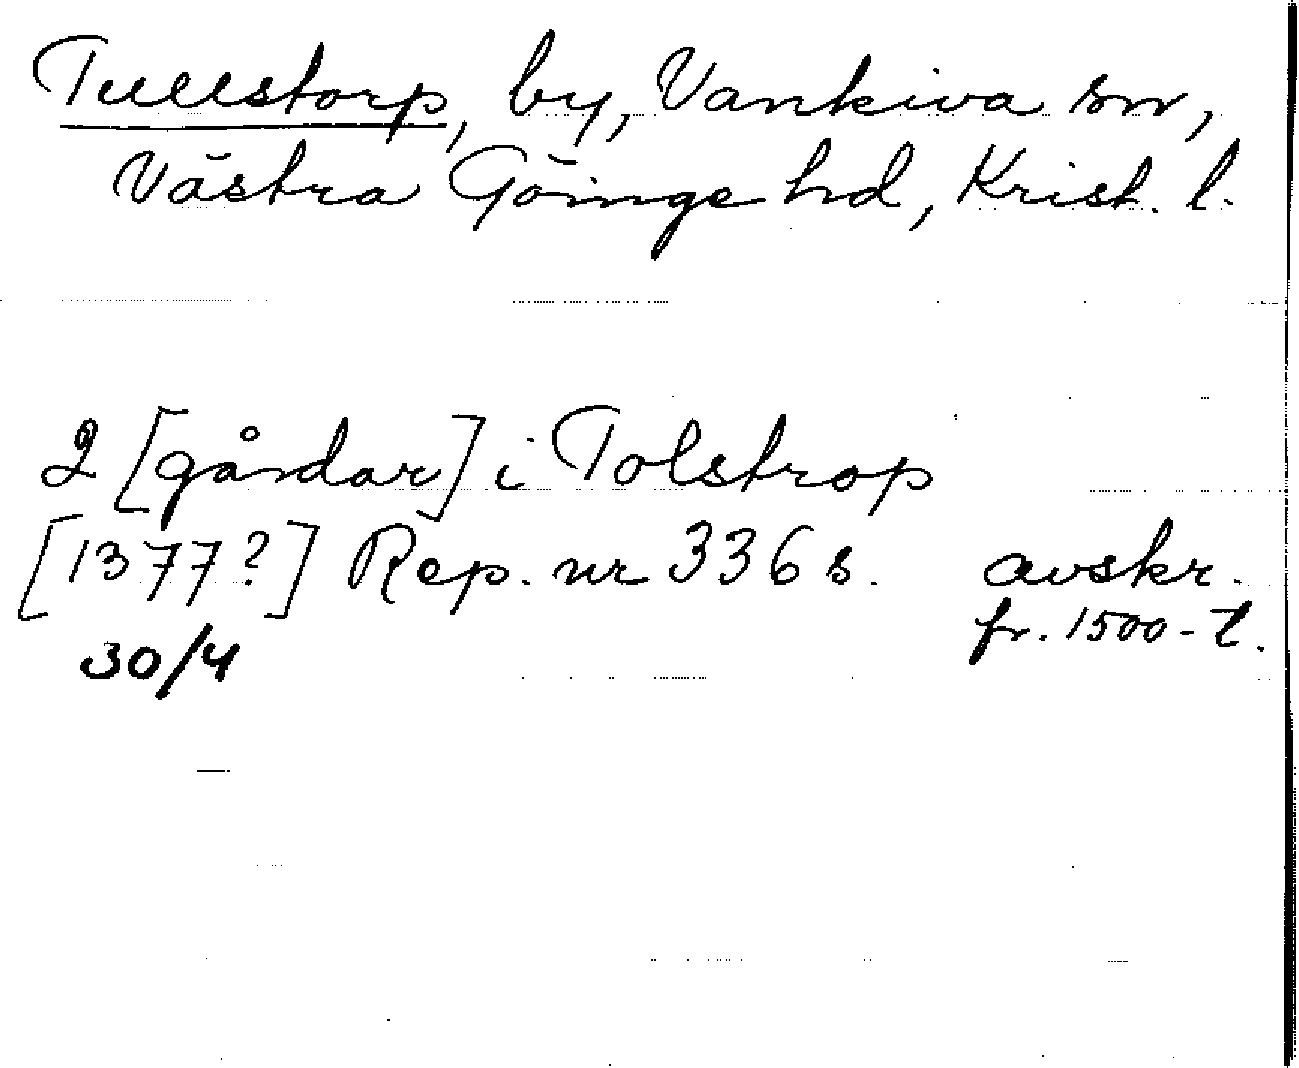 Tullstorp, by, Vankiva sn,
Västra Göinge hd, Krist. l.
2 [gårdar] i Tolstrop
[1377?] Rep. nr 336 s. avskr.
fr. 1500-t.
30/4